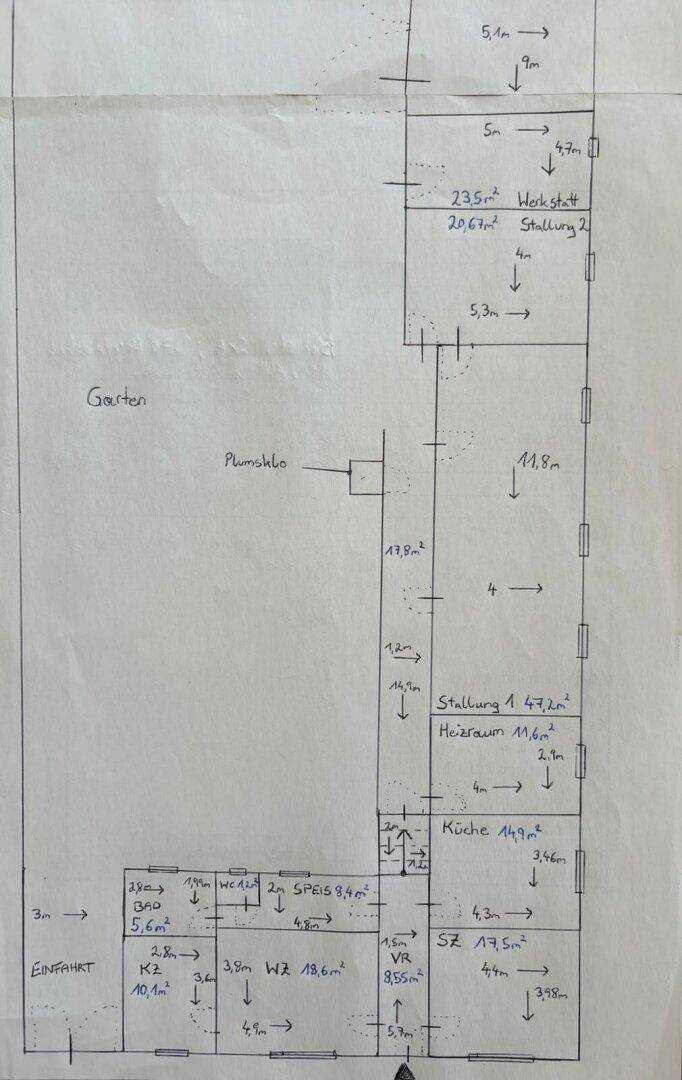 5,1m →
9m
5m →
4,7m
23,5m² Werkstatt
20,67m² Stallung 2
4m
5,3m →
Garten
Plumsklo
11,8m
17,8m²
4 →
1,2m →
14,9m
Stallung 1 47,2m²
Heizraum 11,6m²
2,9m
4m →
2m
1,2m →
Küche 14,9m²
3,46m
4,3m →
2,8m →
1,99m
BAD
5,6m²
WC 1,2m²
2m SPEIS 8,4m²
4,8m →
3m →
EINFAHRT
2,8m →
KZ
10,1m²
3,6m
3,8m WZ 18,6m²
4,9m →
1,5m →
VR
8,55m²
5,7m
SZ 17,5m²
4,4m →
3,98m